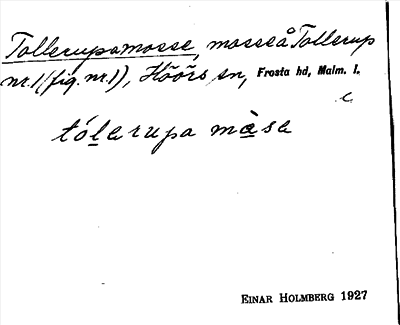 Tollerupamosse, mosse å Tollerup
nr. 1 (fig. nr. 1), Höörs sn, Frosta hd, Malm. l.
c
tólerupa màse
EINAR HOLMBERG 1927